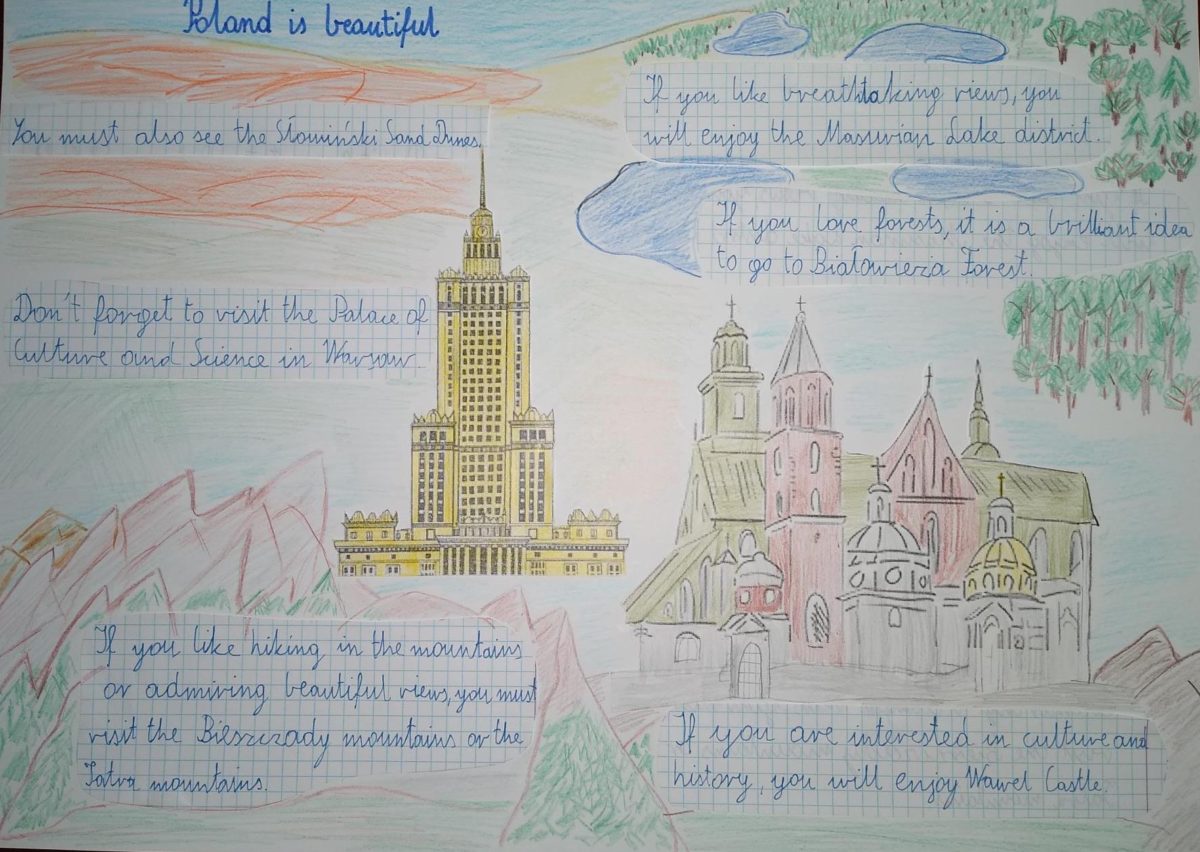 Poland is beautiful
You must also see the Słowiński Sand Dunes.
If you like breathtaking views, you
will enjoy the Masurian Lake district.
If you love forests, it is a brilliant idea
to go to Białowieża Forest.
Don't forget to visit the Palace of
Culture and Science in Warsaw.
If you like hiking in the mountains
or admiring beautiful views, you must
visit the Bieszczady mountains or the
Tatra mountains.
If you are interested in culture and
history, you will enjoy Wawel Castle.